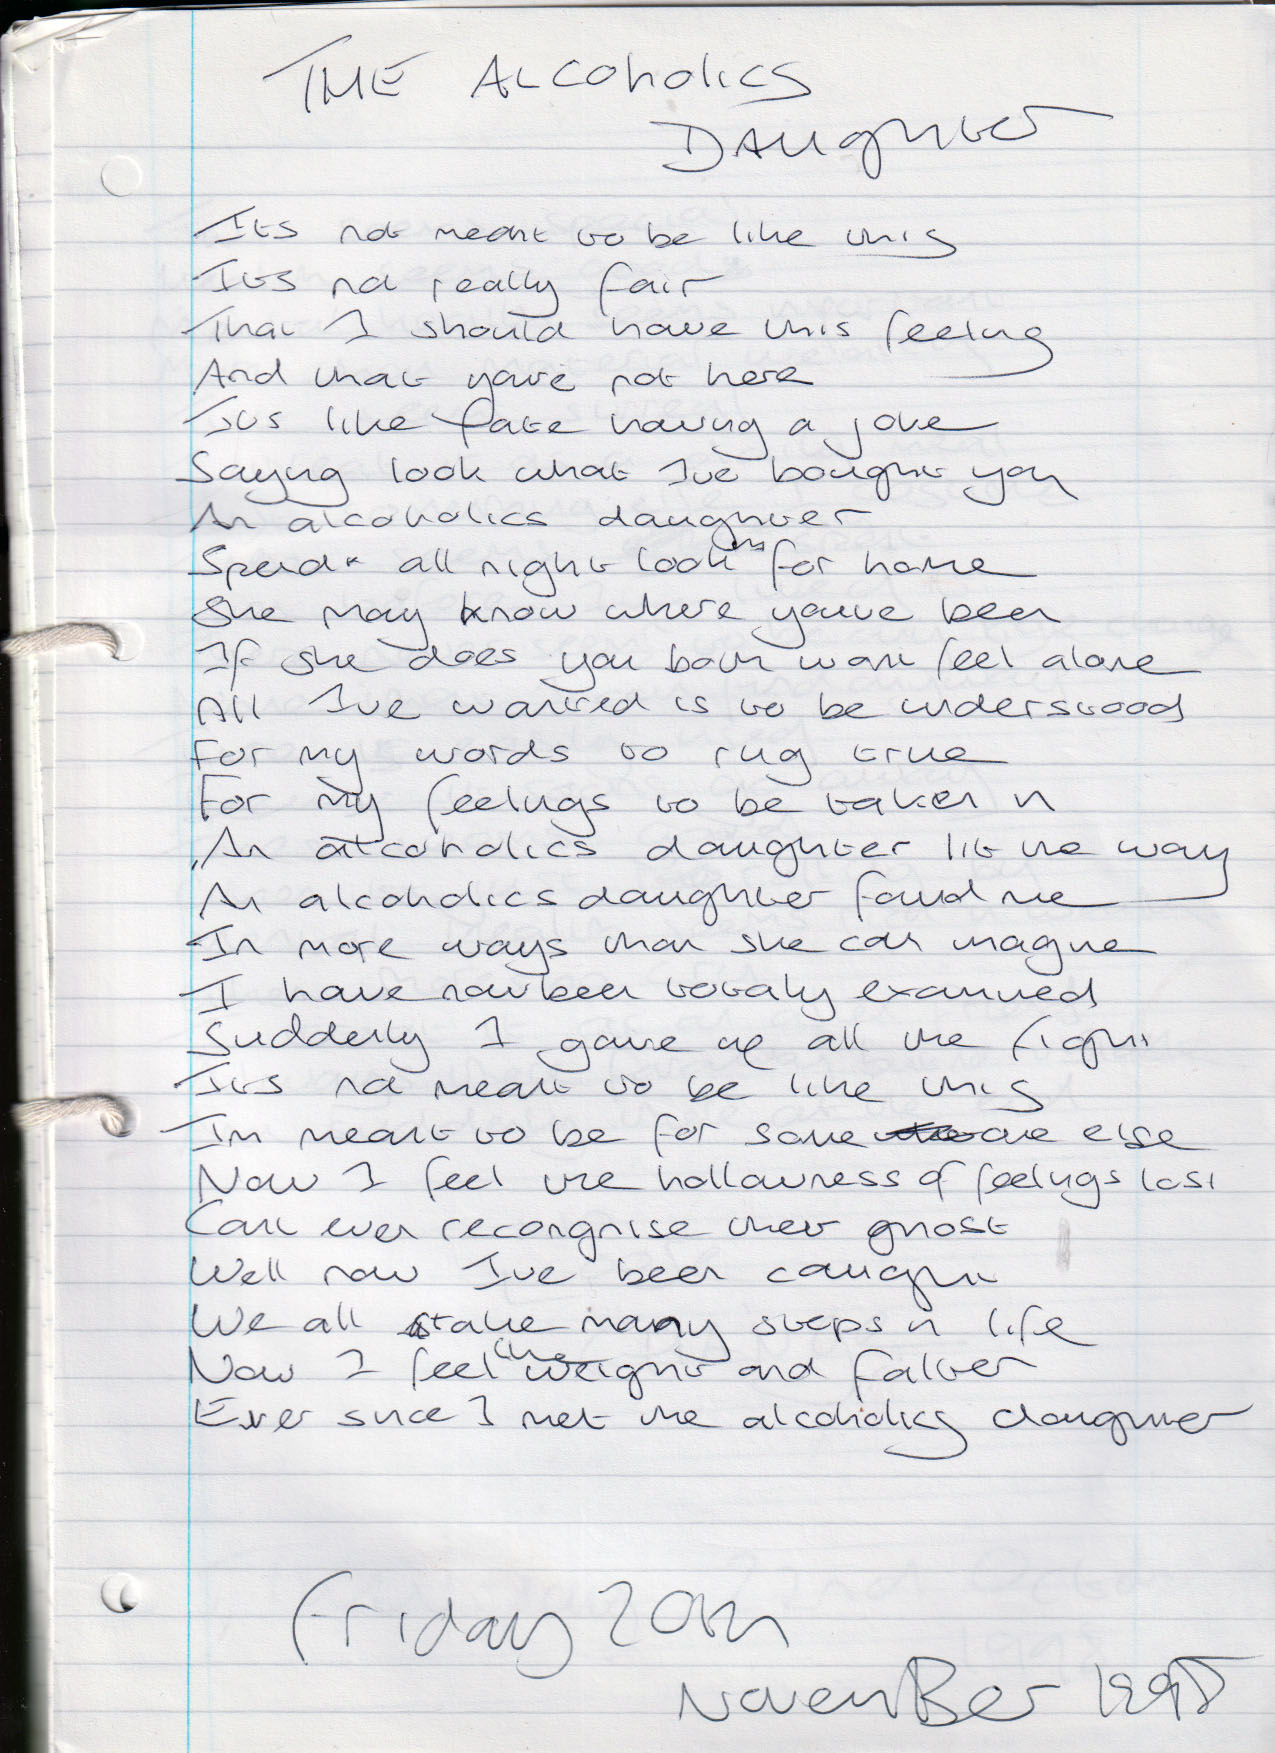 THE ALCOHOLICS
DAUGHTER
Its not meant to be like this
Its not really fair
That I should have this feeling
And that youre not here
Its like fate having a joke
Saying look what Ive bought you
An alcoholics daughter
Spend all night looking for home
She may know where youve been
If she does you both wont feel alone
All Ive wanted is to be understood
For my words to ring true
For my feelings to be taken in
An alcoholics daughter lit the way
An alcoholics daughter found me
In more ways than she can imagine
I have now been totaly examined
Suddenly I gave up all the fight
Its not meant to be like this
Im meant to be for some one else
Now I feel the hollowness of feelings lost
Cant even recongnise their ghost
Well now Ive been caught
We all take many steps in life
Now I feel the weight and falter
Ever since I met the alcoholics daughter
Friday 20th
November